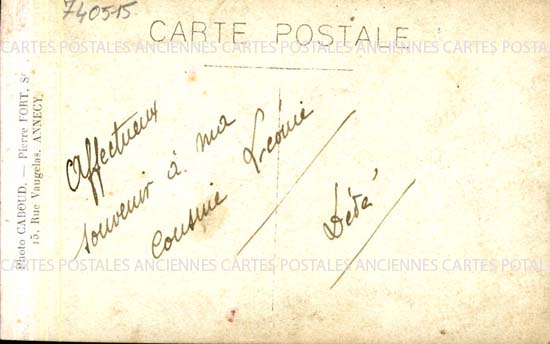 740515
CARTE POSTALE
CARTES POSTALES ANCIENNES CARTES POSTALES ANCIENNES CARTES POSTALES
Affectueux
souvenir à ma
cousine Léonie
Dédé
ANCIENNES CARTES POSTALES ANCIENNES CARTES POSTALES
Photo CABOUD. — Pierre FORT, Sr
15, Rue Vaugelas, ANNECY.